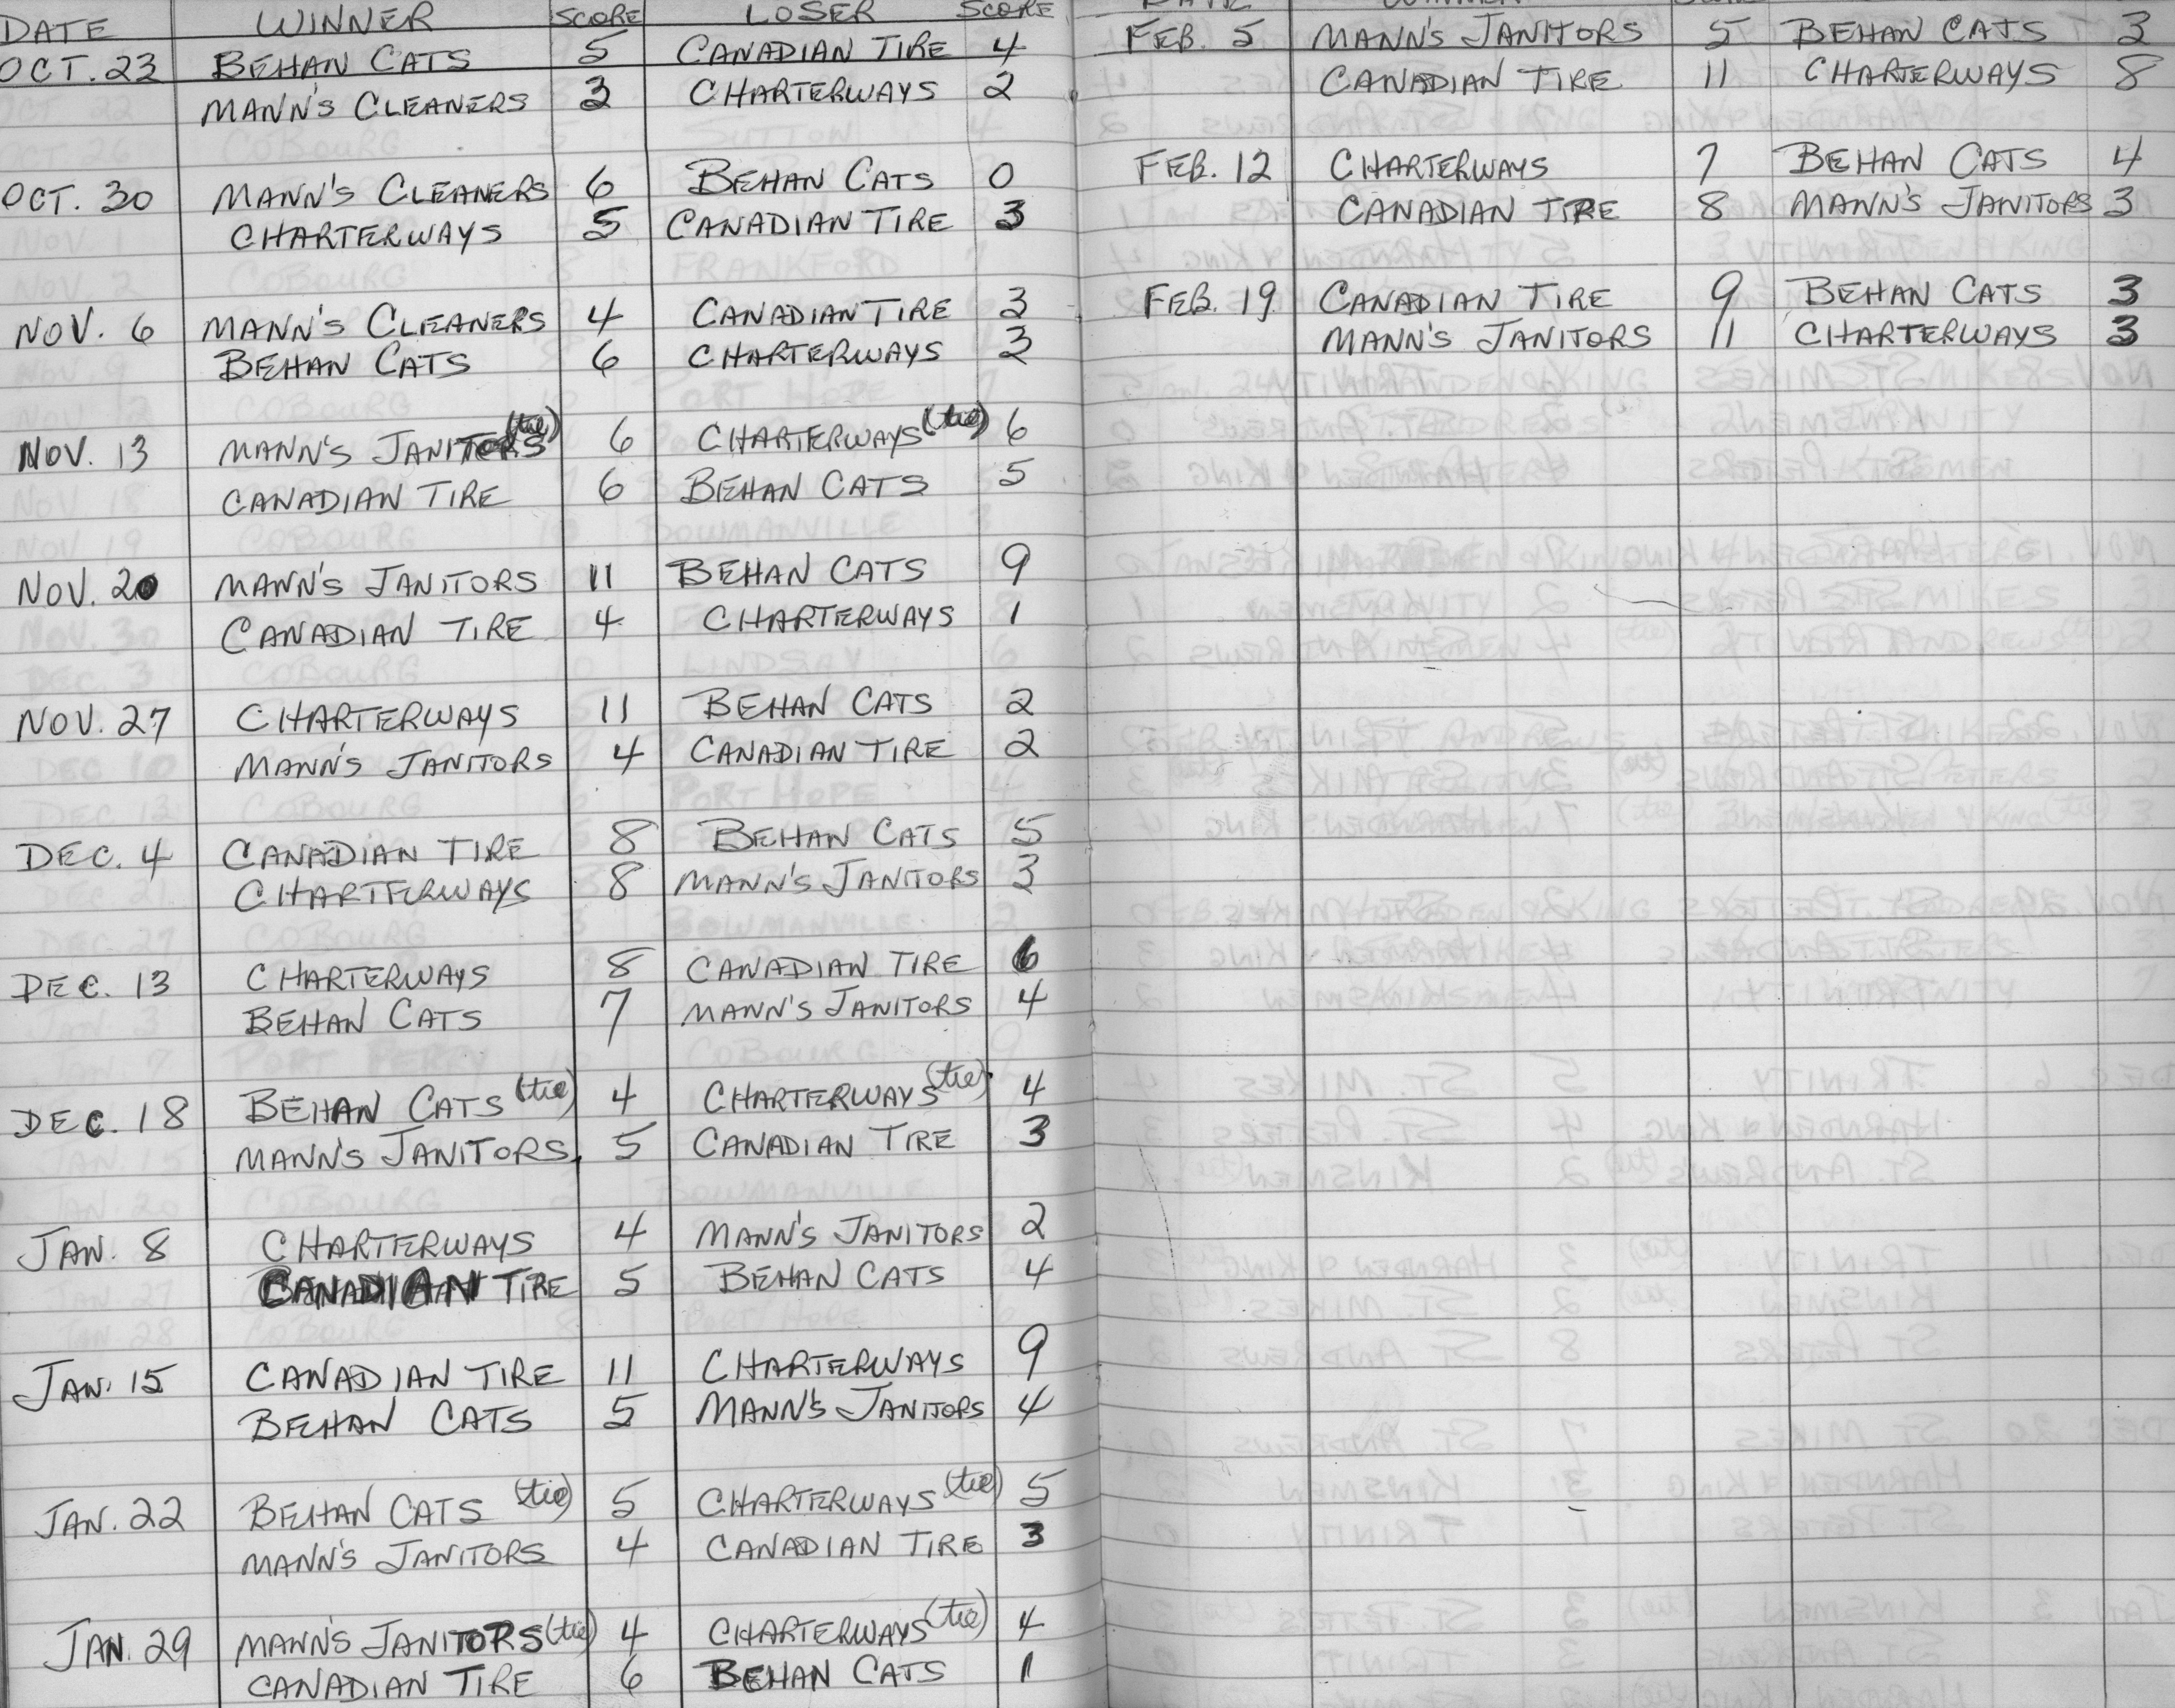 DATE WINNER SCORE LOSER SCORE
OCT. 23 BEHAN CATS 5 CANADIAN TIRE 4
MANN'S CLEANERS 3 CHARTERWAYS 2
OCT. 30 MANN'S CLEANERS 6 BEHAN CATS 0
CHARTERWAYS 5 CANADIAN TIRE 3
NOV. 6 MANN'S CLEANERS 4 CANADIAN TIRE 3
BEHAN CATS 6 CHARTERWAYS 3
NOV. 13 MANN'S JANITORS (tie) 6 CHARTERWAYS (tie) 6
CANADIAN TIRE 6 BEHAN CATS 5
NOV. 20 MANN'S JANITORS 11 BEHAN CATS 9
CANADIAN TIRE 4 CHARTERWAYS 1
NOV. 27 CHARTERWAYS 11 BEHAN CATS 2
MANN'S JANITORS 4 CANADIAN TIRE 2
DEC. 4 CANADIAN TIRE 8 BEHAN CATS 5
CHARTERWAYS 8 MANN'S JANITORS 3
DEC. 13 CHARTERWAYS 8 CANADIAN TIRE 6
BEHAN CATS 7 MANN'S JANITORS 4
DEC. 18 BEHAN CATS (tie) 4 CHARTERWAYS (tie) 4
MANN'S JANITORS 5 CANADIAN TIRE 3
JAN. 8 CHARTERWAYS 4 MANN'S JANITORS 2
CANADIAN TIRE 5 BEHAN CATS 4
JAN. 15 CANADIAN TIRE 11 CHARTERWAYS 9
BEHAN CATS 5 MANN'S JANITORS 4
JAN. 22 BEHAN CATS (tie) 5 CHARTERWAYS (tie) 5
MANN'S JANITORS 4 CANADIAN TIRE 3
JAN. 29 MANN'S JANITORS (tie) 4 CHARTERWAYS (tie) 4
CANADIAN TIRE 6 BEHAN CATS 1
FEB. 5 MANN'S JANITORS 5 BEHAN CATS 3
CANADIAN TIRE 11 CHARTERWAYS 8
FEB. 12 CHARTERWAYS 7 BEHAN CATS 4
CANADIAN TIRE 8 MANN'S JANITORS 3
FEB. 19 CANADIAN TIRE 9 BEHAN CATS 3
MANN'S JANITORS 11 CHARTERWAYS 3